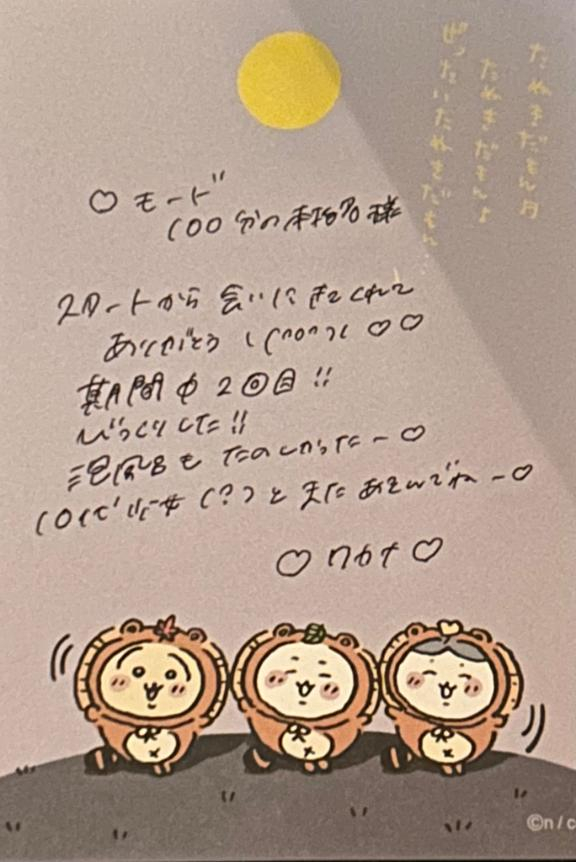 たぬきだもん月
たぬきだもん♪
ぜったいたぬきだもん
♡モード
100分の本指名様
スタートから会いにきてくれて
ありがとう ♡♡
期間中2回目!!
びっくりした!!
泡風呂もたのしかったー♡
痴女(?)とまたあそんでねー♡
♡ワカナ♡
©n/c